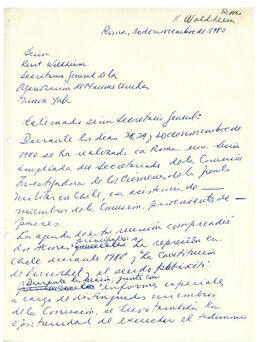 Roma
K. Waldheim
Roma, 30 de noviembre de 1980
Señor
Kurt Waldheim
Secretario General de la
Organización de Naciones Unidas
Nueva York
Estimado señor Secretario General:
Durante los días 28, 29 y 30 de noviembre de
1980 se ha realizado en Roma una Sesión
ampliada del Secretariado de la Comisión
Investigadora de los Crímenes de la Junta
Militar en Chile, con asistencia de
miembros de la Comisión, provenientes de
países.
La agenda de esta reunión comprendió
dos temas principales: La represión en
Chile durante 1980 y "La Constitución
de Pinochet y el plebiscito"
Durante la sesión, junto con
informes especiales
a cargo de distinguidos miembros
de la Comisión, se tuvo también la
oportunidad de escuchar el testimonio